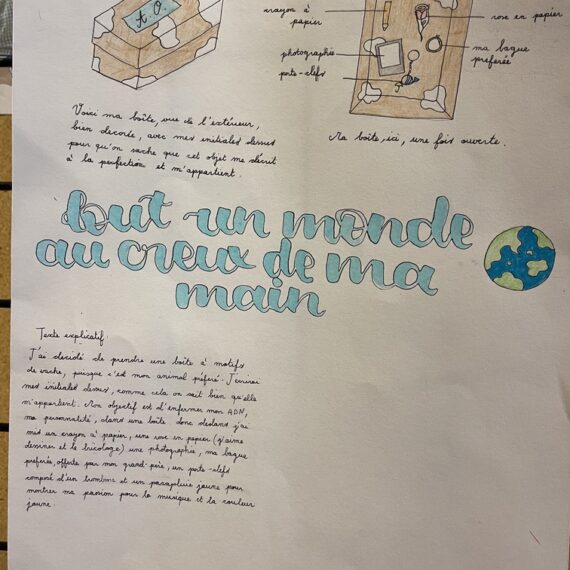 A.O.
crayon à
papier
rose en papier
photographie
ma bague
préférée
porte-clefs
Voici ma boîte, vue de l'extérieur,
bien decorée, avec mes initiales dessus
pour qu'on sache que cet objet me décrit
à la perfection et m'appartient.
Ma boîte, ici, une fois ouverte.
tout un monde
au creux de ma
main
Texte explicatif:
J'ai décidé de prendre une boîte à motifs
de vache, puisque c'est mon animal préféré. J'écrirai
mes initiales dessus, comme cela on sait bien qu'elle
m'appartient. Mon objectif est d'enfermer mon ADN,
ma personnalité, dans une boîte. donc dedans j'ai
mis un crayon à papier, une rose en papier (j'aime
dessiner et le bricolage) une photographie, ma bague
préférée, offerte par mon grand-père, un porte-clefs
composé d'un trombone et un parapluie jaune pour
montrer ma passion pour la musique et la couleur
jaune.